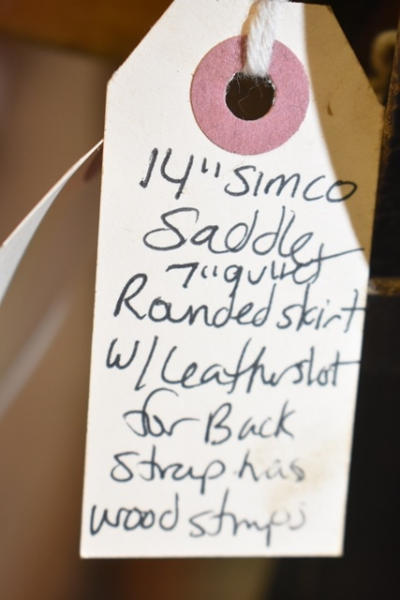 14" Simco
Saddle
7"
Rounded skirt
w/Leather slot
for Back
Strap has
wood